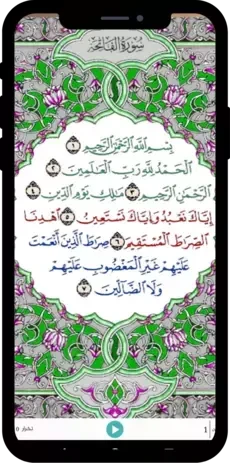 سُورَةُ الْفَاتِحَة
بِسْمِ اللَّهِ الرَّحْمَٰنِ الرَّحِيمِ ١
الْحَمْدُ لِلَّهِ رَبِّ الْعَالَمِينَ ٢
الرَّحْمَٰنِ الرَّحِيمِ ٣ مَالِكِ يَوْمِ الدِّينِ ٤
إِيَّاكَ نَعْبُدُ وَإِيَّاكَ نَسْتَعِينُ ٥ اهْدِنَا
الصِّرَاطَ الْمُسْتَقِيمَ ٦ صِرَاطَ الَّذِينَ أَنْعَمْتَ
عَلَيْهِمْ غَيْرِ الْمَغْضُوبِ عَلَيْهِمْ
وَلَا الضَّالِّينَ ٧
تکرار 0
1